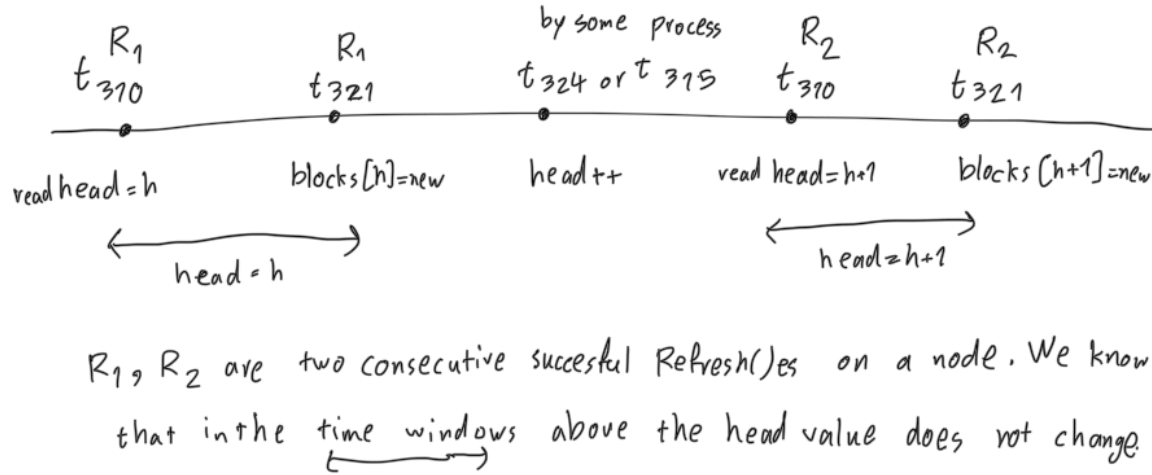 by some process
R₁ R₁ t₃₂₄ or t₃₁₅ R₂ R₂
t₃₁₀ t₃₂₁ t₃₁₀ t₃₂₁
read head=h blocks[h]=new head++ read head=h+1 blocks[h+1]=new
head=h head=h+1
R₁, R₂ are two consecutive succesful Refresh()es on a node. We know
that in the time windows above the head value does not change.